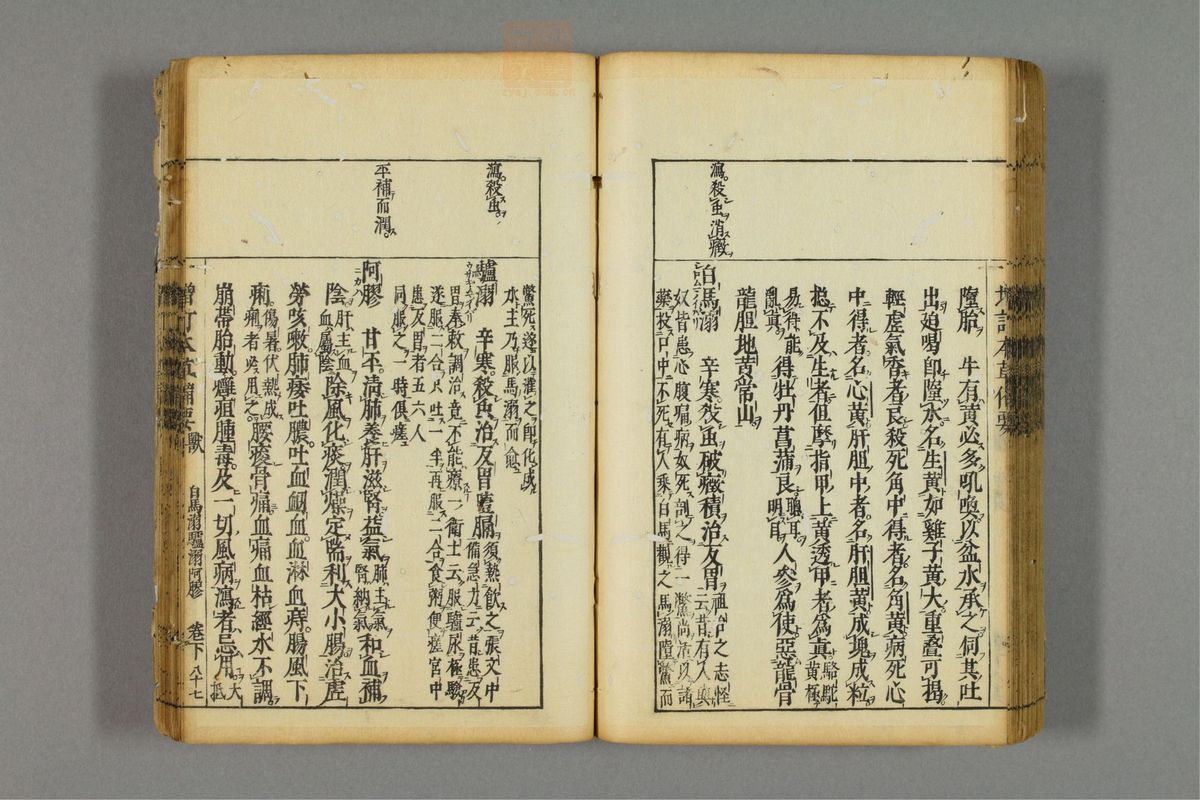 墮胎 牛有黄必多吼喚以盆水承之伺其吐
出廹喝即墮水名生黄如雞子黄大重叠可揭
輕虚氣香者良殺死角中得者名角黄病死心
中得者名心黄肝胆中者名肝胆黄成塊成粒
摠不及生者但摩指甲上黄透甲者爲真駱駝黄極
易得能亂真 得牡丹菖蒲良聰耳明目人參爲使惡龍骨
龍胆地黄常山
瀉殺虫消癥
白馬溺 辛寒殺虫破癥積治反胃祖台之志怪云昔有人與
奴皆患心腹痛病奴死剖之得一鱉尚活以諸
藥投口中不死有人乘白馬觀之馬溺墮鱉而
鱉死遂以灌之即化成
水主乃服馬溺而愈
瀉殺虫
驢溺 辛寒殺虫治反胃噎膈須熱飲之張文中備急方云昔患反
胃奉敕調治竟不能療一衛士云服驢尿極驗
遂服二合只吐一半再服二合食粥便瘥宮中
患反胃者五六人
同服之一時俱瘥
平補而潤
阿膠 甘平清肺養肝滋腎益氣肺主氣腎納氣和血補
陰肝主血血屬陰除風化痰潤燥定喘利大小腸治虚
勞咳嗽肺痿吐膿吐血衂血血淋血痔腸風下
痢傷暑伏熱成痢者必用之腰痠骨痛血痛血枯經水不調
崩帶胎動癰疽腫毒及一切風病瀉者忌用大抵
增訂本草備要 獸 白馬溺驢溺阿膠 卷下 八十七